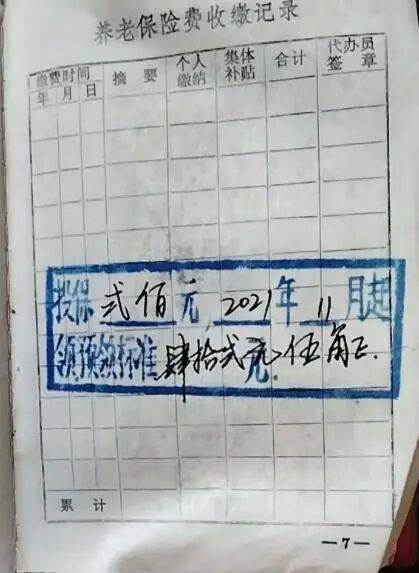 养老保险费收缴记录
缴费时间 摘要 个人缴纳 集体补贴 合计 代办员签章
年 月 日
投保 弍佰 元, 2021 年 11 月起
领预领标准 肆拾弍元伍角正.
累计
—7—